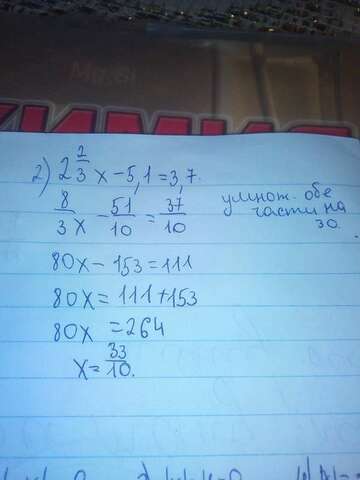 ХИМИЯ
2) 2 2/3 x - 5,1 = 3,7.
8/3 x - 51/10 = 37/10
умнож. обе
части на
30.
80x - 153 = 111
80x = 111 + 153
80x = 264
x = 33/10.